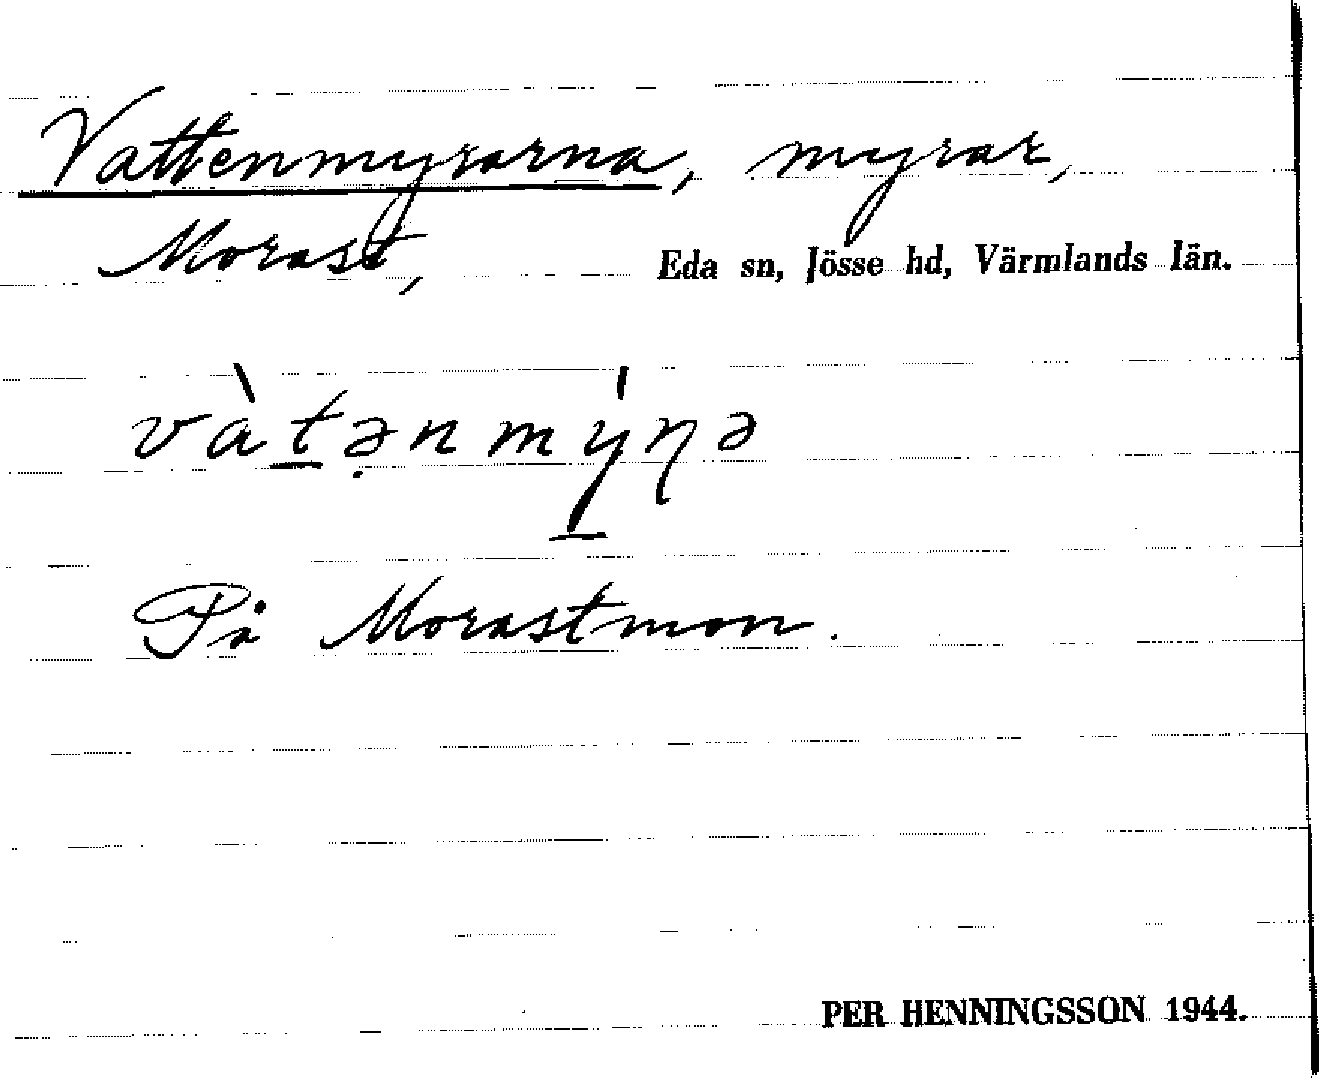 Vattenmyrarna, myrar,
Morast, Eda sn, Jösse hd, Värmlands län.
vàt̲ə̣nmý̲ɳə
På Morastmon.
PER HENNINGSSON 1944.